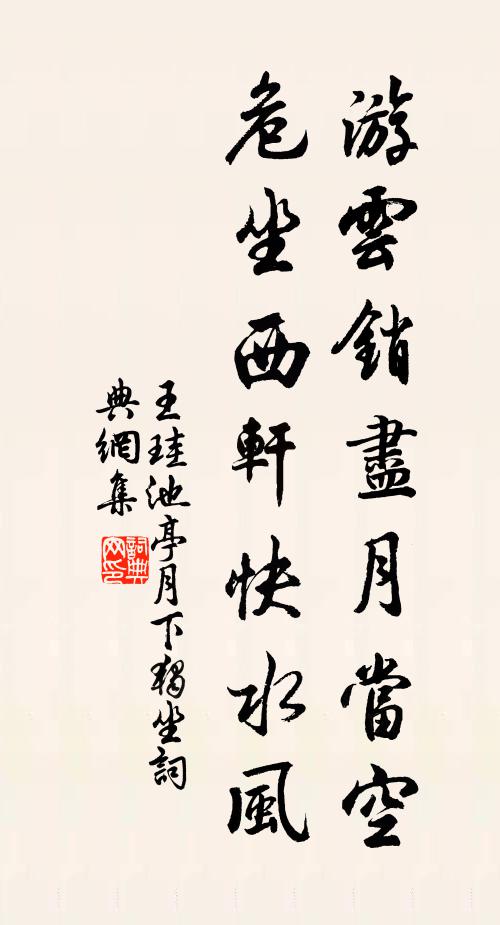 游雲銷盡月當空
危坐西軒快水風
王珪池亭月下獨坐詞
典網集
詞典網印